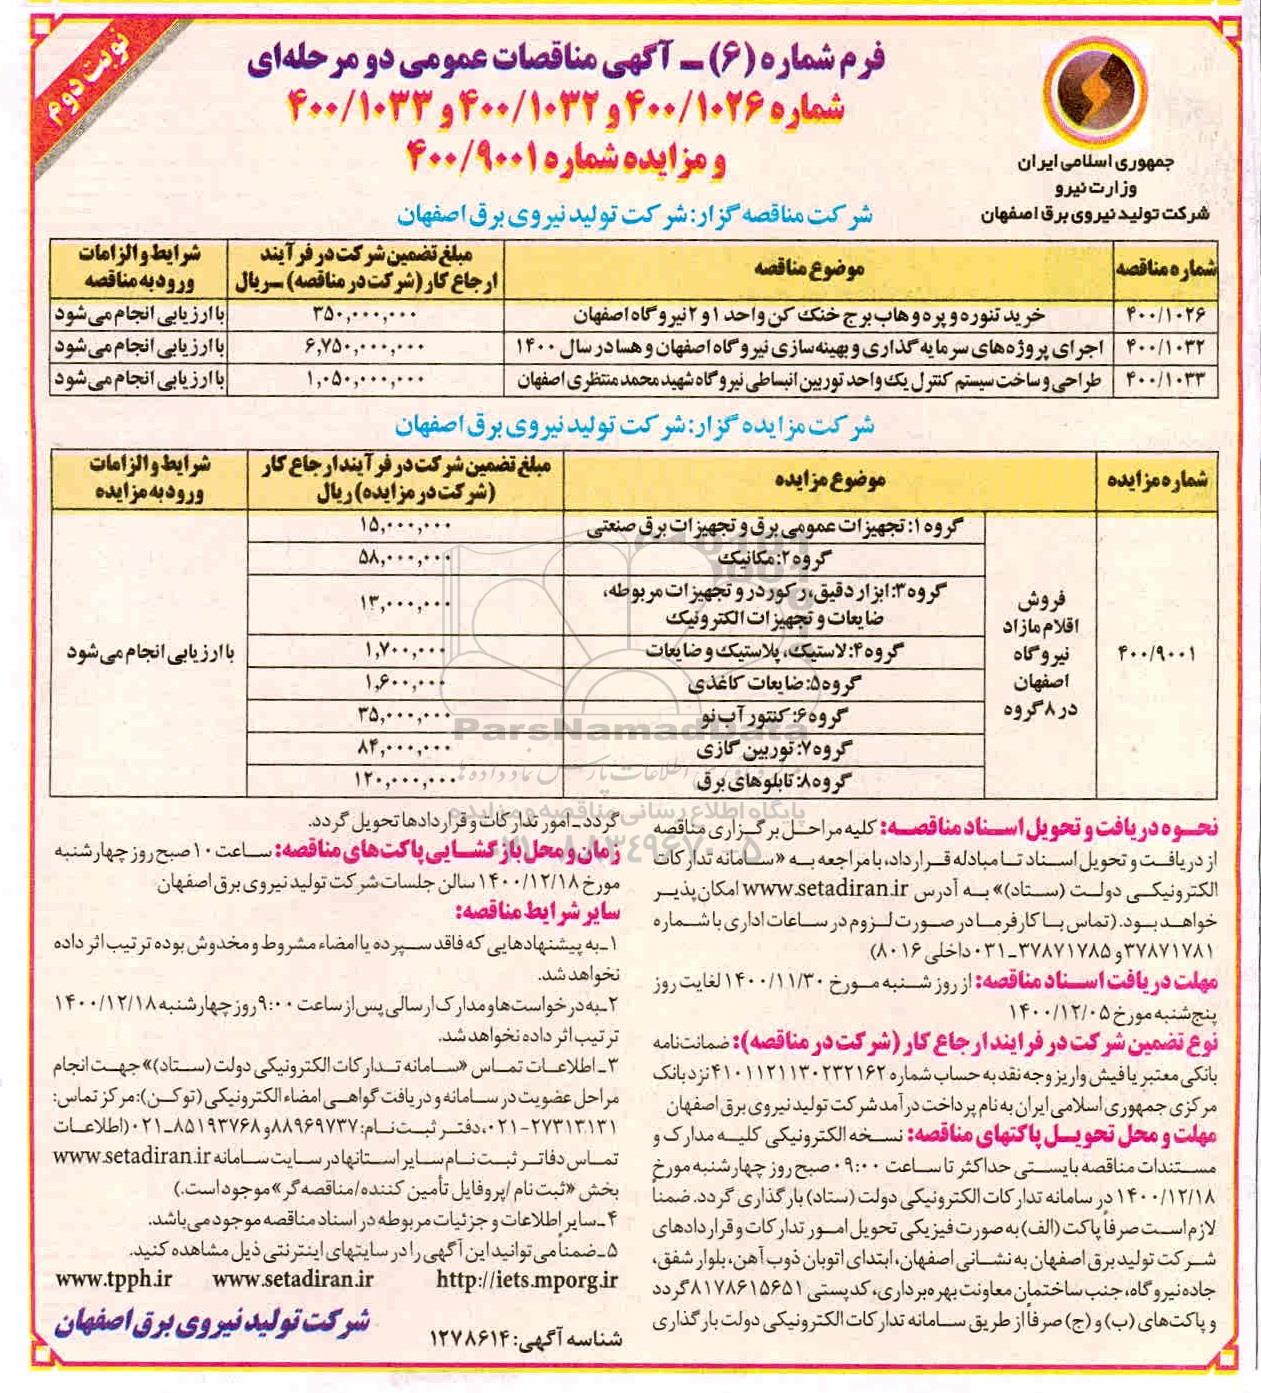 نوبت دوم
فرم شماره (۶) ـ آگهی مناقصات عمومی دو مرحله‌ای
شماره ۴۰۰/۱۰۲۶ و ۴۰۰/۱۰۳۲ و ۴۰۰/۱۰۳۳
و مزایده شماره ۴۰۰/۹۰۰۱
جمهوری اسلامی ایران
وزارت نیرو
شرکت تولید نیروی برق اصفهان
شرکت مناقصه گزار: شرکت تولید نیروی برق اصفهان
شماره مناقصه | موضوع مناقصه | مبلغ تضمین شرکت در فرآیند ارجاع کار (شرکت در مناقصه) ـ ریال | شرایط و الزامات ورود به مناقصه
۴۰۰/۱۰۲۶ | خرید تنوره و پره و هاب برج خنک کن واحد ۱ و ۲ نیروگاه اصفهان | ۳۵۰,۰۰۰,۰۰۰ | با ارزیابی انجام می‌شود
۴۰۰/۱۰۳۲ | اجرای پروژه‌های سرمایه گذاری و بهینه سازی نیروگاه اصفهان و هسا در سال ۱۴۰۰ | ۶,۷۵۰,۰۰۰,۰۰۰ | با ارزیابی انجام می‌شود
۴۰۰/۱۰۳۳ | طراحی و ساخت سیستم کنترل یک واحد توربین انبساطی نیروگاه شهید محمد منتظری اصفهان | ۱,۰۵۰,۰۰۰,۰۰۰ | با ارزیابی انجام می‌شود
شرکت مزایده گزار: شرکت تولید نیروی برق اصفهان
شماره مزایده | موضوع مزایده | مبلغ تضمین شرکت در فرآیند ارجاع کار (شرکت در مزایده) ریال | شرایط و الزامات ورود به مزایده
۴۰۰/۹۰۰۱ | فروش اقلام مازاد نیروگاه اصفهان در ۸ گروه | با ارزیابی انجام می‌شود
گروه ۱: تجهیزات عمومی برق و تجهیزات برق صنعتی | ۱۵,۰۰۰,۰۰۰
گروه ۲: مکانیک | ۵۸,۰۰۰,۰۰۰
گروه ۳: ابزار دقیق، رکوردر و تجهیزات مربوطه، ضایعات و تجهیزات الکترونیک | ۱۳,۰۰۰,۰۰۰
گروه ۴: لاستیک، پلاستیک و ضایعات | ۱,۷۰۰,۰۰۰
گروه ۵: ضایعات کاغذی | ۱,۶۰۰,۰۰۰
گروه ۶: کنتور آب نو | ۳۵,۰۰۰,۰۰۰
گروه ۷: توربین گازی | ۸۴,۰۰۰,۰۰۰
گروه ۸: تابلوهای برق | ۱۲۰,۰۰۰,۰۰۰
ParsNamadData
پایگاه اطلاع رسانی مناقصه و مزایده
نحوه دریافت و تحویل اسناد مناقصه: کلیه مراحل برگزاری مناقصه
از دریافت و تحویل اسناد تا مبادله قرارداد، با مراجعه به «سامانه تدارکات
الکترونیکی دولت (ستاد)» به آدرس www.setadiran.ir امکان پذیر
خواهد بود. (تماس با کارفرما در صورت لزوم در ساعات اداری با شماره
۳۷۸۷۱۷۸۱ و ۳۷۸۷۱۷۸۵ـ۰۳۱ داخلی ۸۰۱۶)
مهلت دریافت اسناد مناقصه: از روز شنبه مورخ ۱۴۰۰/۱۱/۳۰ لغایت روز
پنج‌شنبه مورخ ۱۴۰۰/۱۲/۰۵
نوع تضمین شرکت در فرایند ارجاع کار (شرکت در مناقصه): ضمانت‌نامه
بانکی معتبر یا فیش واریز وجه نقد به حساب شماره ۴۱۰۱۱۲۱۱۳۰۲۳۲۱۶۲ نزد بانک
مرکزی جمهوری اسلامی ایران به نام پرداخت درآمد شرکت تولید نیروی برق اصفهان
مهلت و محل تحویل پاکتهای مناقصه: نسخه الکترونیکی کلیه مدارک و
مستندات مناقصه بایستی حداکثر تا ساعت ۰۹:۰۰ صبح روز چهارشنبه مورخ
۱۴۰۰/۱۲/۱۸ در سامانه تدارکات الکترونیکی دولت (ستاد) بارگذاری گردد. ضمناً
لازم است صرفاً پاکت (الف) به صورت فیزیکی تحویل امور تدارکات و قراردادهای
شرکت تولید برق اصفهان به نشانی اصفهان، ابتدای اتوبان ذوب آهن، بلوار شفق،
جاده نیروگاه، جنب ساختمان معاونت بهره برداری، کدپستی ۸۱۷۸۶۱۵۶۵۱ گردد
و پاکت‌های (ب) و (ج) صرفاً از طریق سامانه تدارکات الکترونیکی دولت بارگذاری
گردد ـ امور تدارکات و قراردادها تحویل گردد.
زمان و محل بازگشایی پاکت‌های مناقصه: ساعت ۱۰ صبح روز چهارشنبه
مورخ ۱۴۰۰/۱۲/۱۸ سالن جلسات شرکت تولید نیروی برق اصفهان
سایر شرایط مناقصه:
۱ـ به پیشنهادهایی که فاقد سپرده یا امضاء مشروط و مخدوش بوده ترتیب اثر داده
نخواهد شد.
۲ـ به درخواست‌ها و مدارک ارسالی پس از ساعت ۹:۰۰ روز چهارشنبه ۱۴۰۰/۱۲/۱۸
ترتیب اثر داده نخواهد شد.
۳ـ اطلاعات تماس «سامانه تدارکات الکترونیکی دولت (ستاد)» جهت انجام
مراحل عضویت در سامانه و دریافت گواهی امضاء الکترونیکی (توکن): مرکز تماس:
۲۷۳۱۳۱۳۱-۰۲۱، دفتر ثبت نام: ۸۸۹۶۹۷۳۷ و ۸۵۱۹۳۷۶۸ـ۰۲۱ (اطلاعات
تماس دفاتر ثبت نام سایر استانها در سایت سامانه www.setadiran.ir
بخش «ثبت نام /پروفایل تأمین کننده/مناقصه گر» موجود است.)
۴ـ سایر اطلاعات و جزئیات مربوطه در اسناد مناقصه موجود می‌باشد.
۵ـ ضمناً می توانید این آگهی را در سایتهای اینترنتی ذیل مشاهده کنید.
http://iets.mporg.ir www.setadiran.ir www.tpph.ir
شرکت تولید نیروی برق اصفهان
شناسه آگهی: ۱۲۷۸۶۱۴